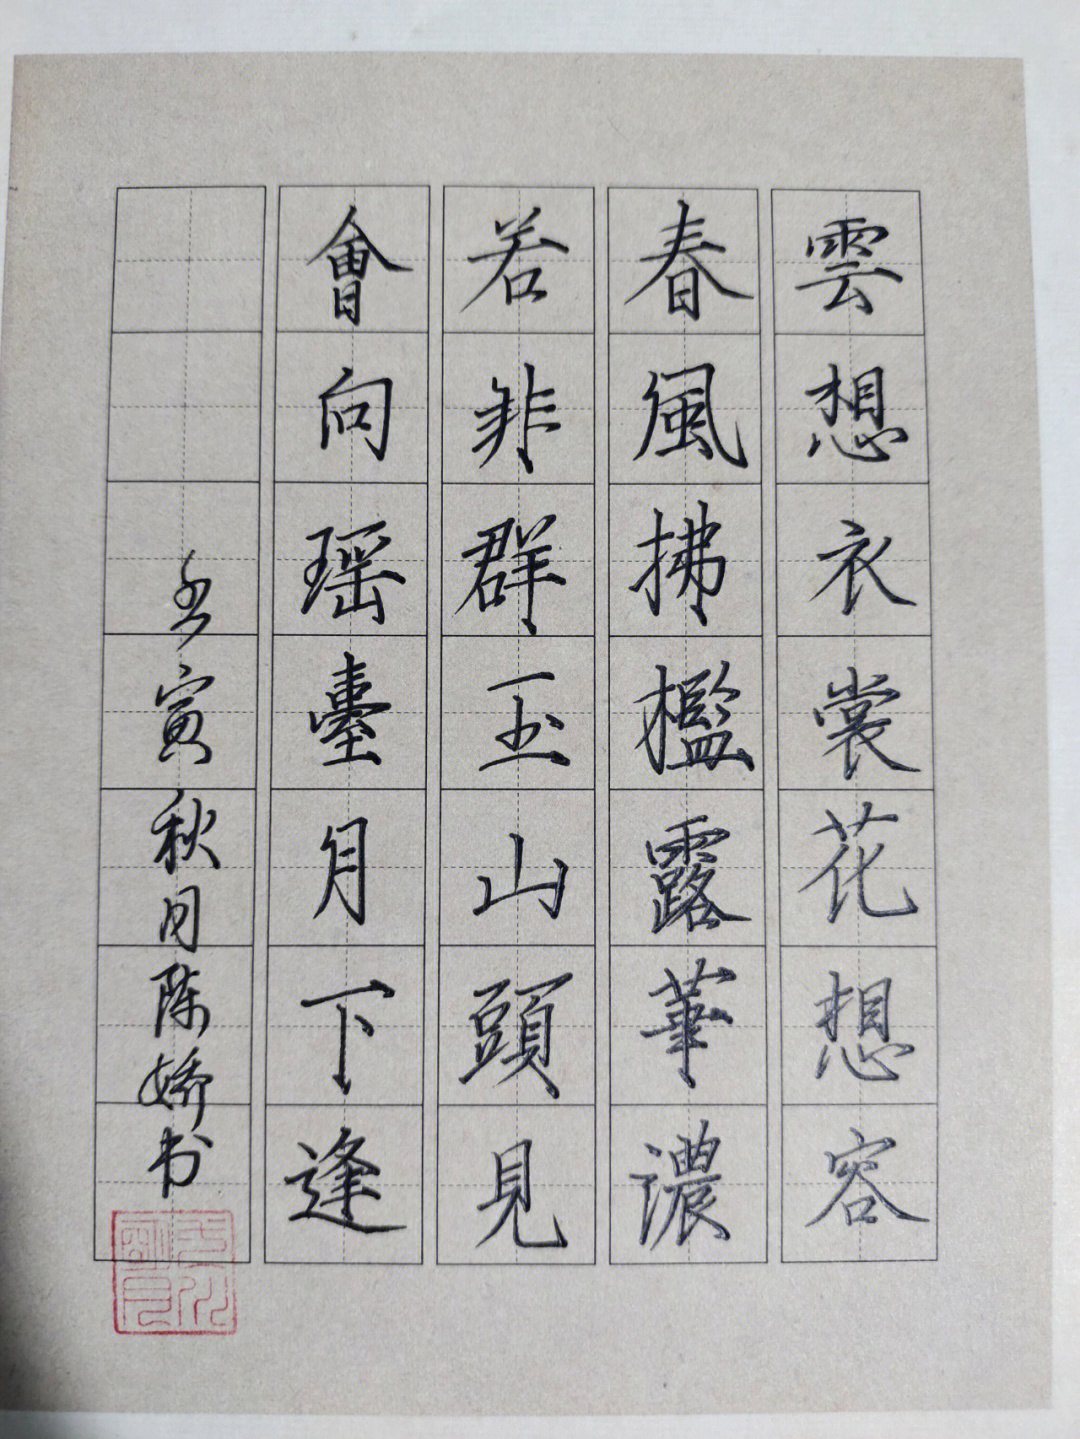 雲想衣裳花想容
春風拂檻露華濃
若非群玉山頭見
會向瑶臺月下逢
壬寅秋月陈娇书